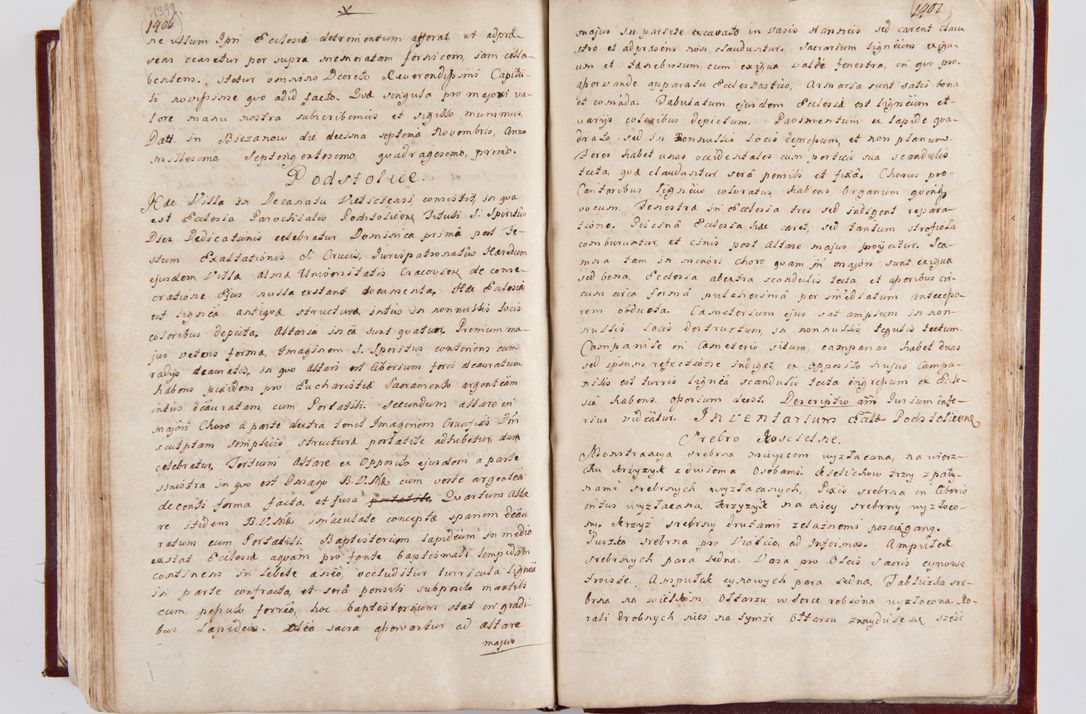 1399
1406
ne ullum Ipsi Ecclesiæ detrementum afferat ut adpræ
sens cernetur per supra memoratam fornicem, jam colla
bentem. Stetur omnino Decreto Reverendissimi Capitu
li novissime quo adid facto. Quæ singula pro majori va
lore manu nostra subscribimus et sigillo munimus.
Datt. in Biezanow die decima septema Novembris, Anno
millesimo Septengentesimo, quadragesimo, primo.
Podstolice.
Hæc Villa in Decanatu Vieliciensi consistit, in qua
est Ecclesia Parochialis Podstolicen Tituli S. Spiritus
Dies Dedicationis celebratur Dominica prima post Fe
stum Exaltationis S. Crucis, Jurispatronatus Hæredum
ejusdem Villæ Almæ Universitatis Cracovien de conse
cratione Ejus nulla extant documenta. Hæc Ecclesia
est lignea antiqua structura intus in nonnullis locis
coloribus depicta. Altaria in ea sunt quatuor Primum ma
jus veteris forma, Imaginem S. Spiritus continens cum
radijs deauratis, in quo Altari est Ciborium foris deauratum
habens pixidem pro Eucharistiæ Sacramento argenteam
intus deauratam, cum Portatili secundum altare in
majori Choro a parte dextra tenet Imaginem Crucifixi Dni
sculptam simplicis structura portatile adhibetur dum
celebratur. Tertium Altare ex opposito ejusdem a parte
sinistra in quo est Imago B.V.Mæ cum veste argentea
decenti forma facta, et fusa portatile Quartum Alta
re itidem B.V.Mæ immaculatæ conceptæ deau
ratum cum Portatili. Baptisterium lapideum in medio
extat Ecclesiæ aquam pro fonte baptismali limpidam
continens in lebete æneo, occluditur turricula lignea
in parte confracta, et sera pensili subposito mantili
cum pepulo ferreo, hoc baptisterium stat in gradi
bus Lapideis. Olea sacra asservantur ad altare
majus
1401
majus in pariete excavato in vasis stanneis sed carent clau
stro et ad præsens non clauduntur. Sacrarium ligneum exigu
um et tenebrosum cum exigua valde fenestra, in quo pro
asservando apparatu Ecclesiastico, Armaria sunt satis bona
et comoda. Tabulatum ejusdem Ecclesiæ est ligneum et
varijs coloribus depictum. Pavimentum ex lapide qua
drato, sed in nonnullis locis depressum, et non planum
Fores habet unas occidentales cum porticu sua scandulis
tecta, quæ clauditur sera pensili et fixa. Chorus pro
Cantoribus ligneus coloratus, habens Organum quinq
vocum. Fenestræ in Ecclesia tres sed indigent repara
tione. Piscina Ecclesia hæc caret, sed tantum strofiola
comburuntur, et cinis post Altare majus projicitur. Sca
mna tam in minori choro quam in majori sunt exigua
sed bona, Ecclesia abextra scandulis tecta et asseribus cir
cum circa forma pulcherima per imediatum antecesso
rem obducta. Cæmeterium ejus sat amplum in non
nullis locis destructum, in nonnullis tegulis tectum.
Campanile in Cæmeterio situm, campanas habet duas
sed ipsum refectione indiget ex opposito hujus Campa
nilis est turris lignea scandulis tecta ingressum ex Eccle
sia habens ossorium deest. Descriptio aut Jurium infe
rius videatur. INVENTARIUM Ecclæ Podstolicen
Srebro Koscielne.
Monstrancya srebrna mieyscem wyzłacana, na wierz-
chu krzyzyk z dwiema Osobami, Kielichow trzy z paty
nami srebrnych wyzłacanych, Pixis srebrna in Ciborio
intus wyzłacana, krzyzyk na niey srebrny wyzłoco
ny. Krzyż srebrny drutami zelaznemi pościągany.
Puszka srebrna pro Viatico, ad Infirmos. Ampułek
srebrnych para iedna. Vasa pro Oleis Sacris cynowe
troiste. Ampułek cynowych para iedna, Tabliczka sre
brna na wielkim Ołtarzu w serce robiona wyzłocona. Ko-
rali drobnych nici na tymże Ołtarzu znayduie się sześć